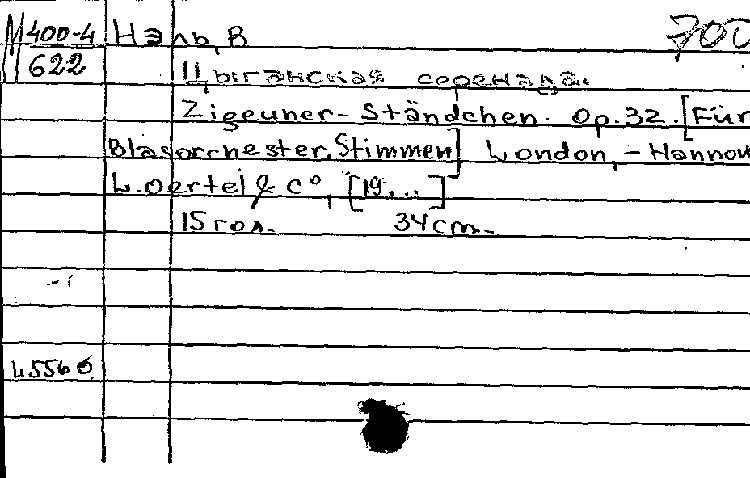 М 400-4 Нэль, В 700
622 Цыганская серенада.
Zigeuner-Ständchen. Op.32. [Für
Blasorchester. Stimmen] London, - Hannov
L. Oertel & C°, [19...]
15 гол. 34 cm.
45560